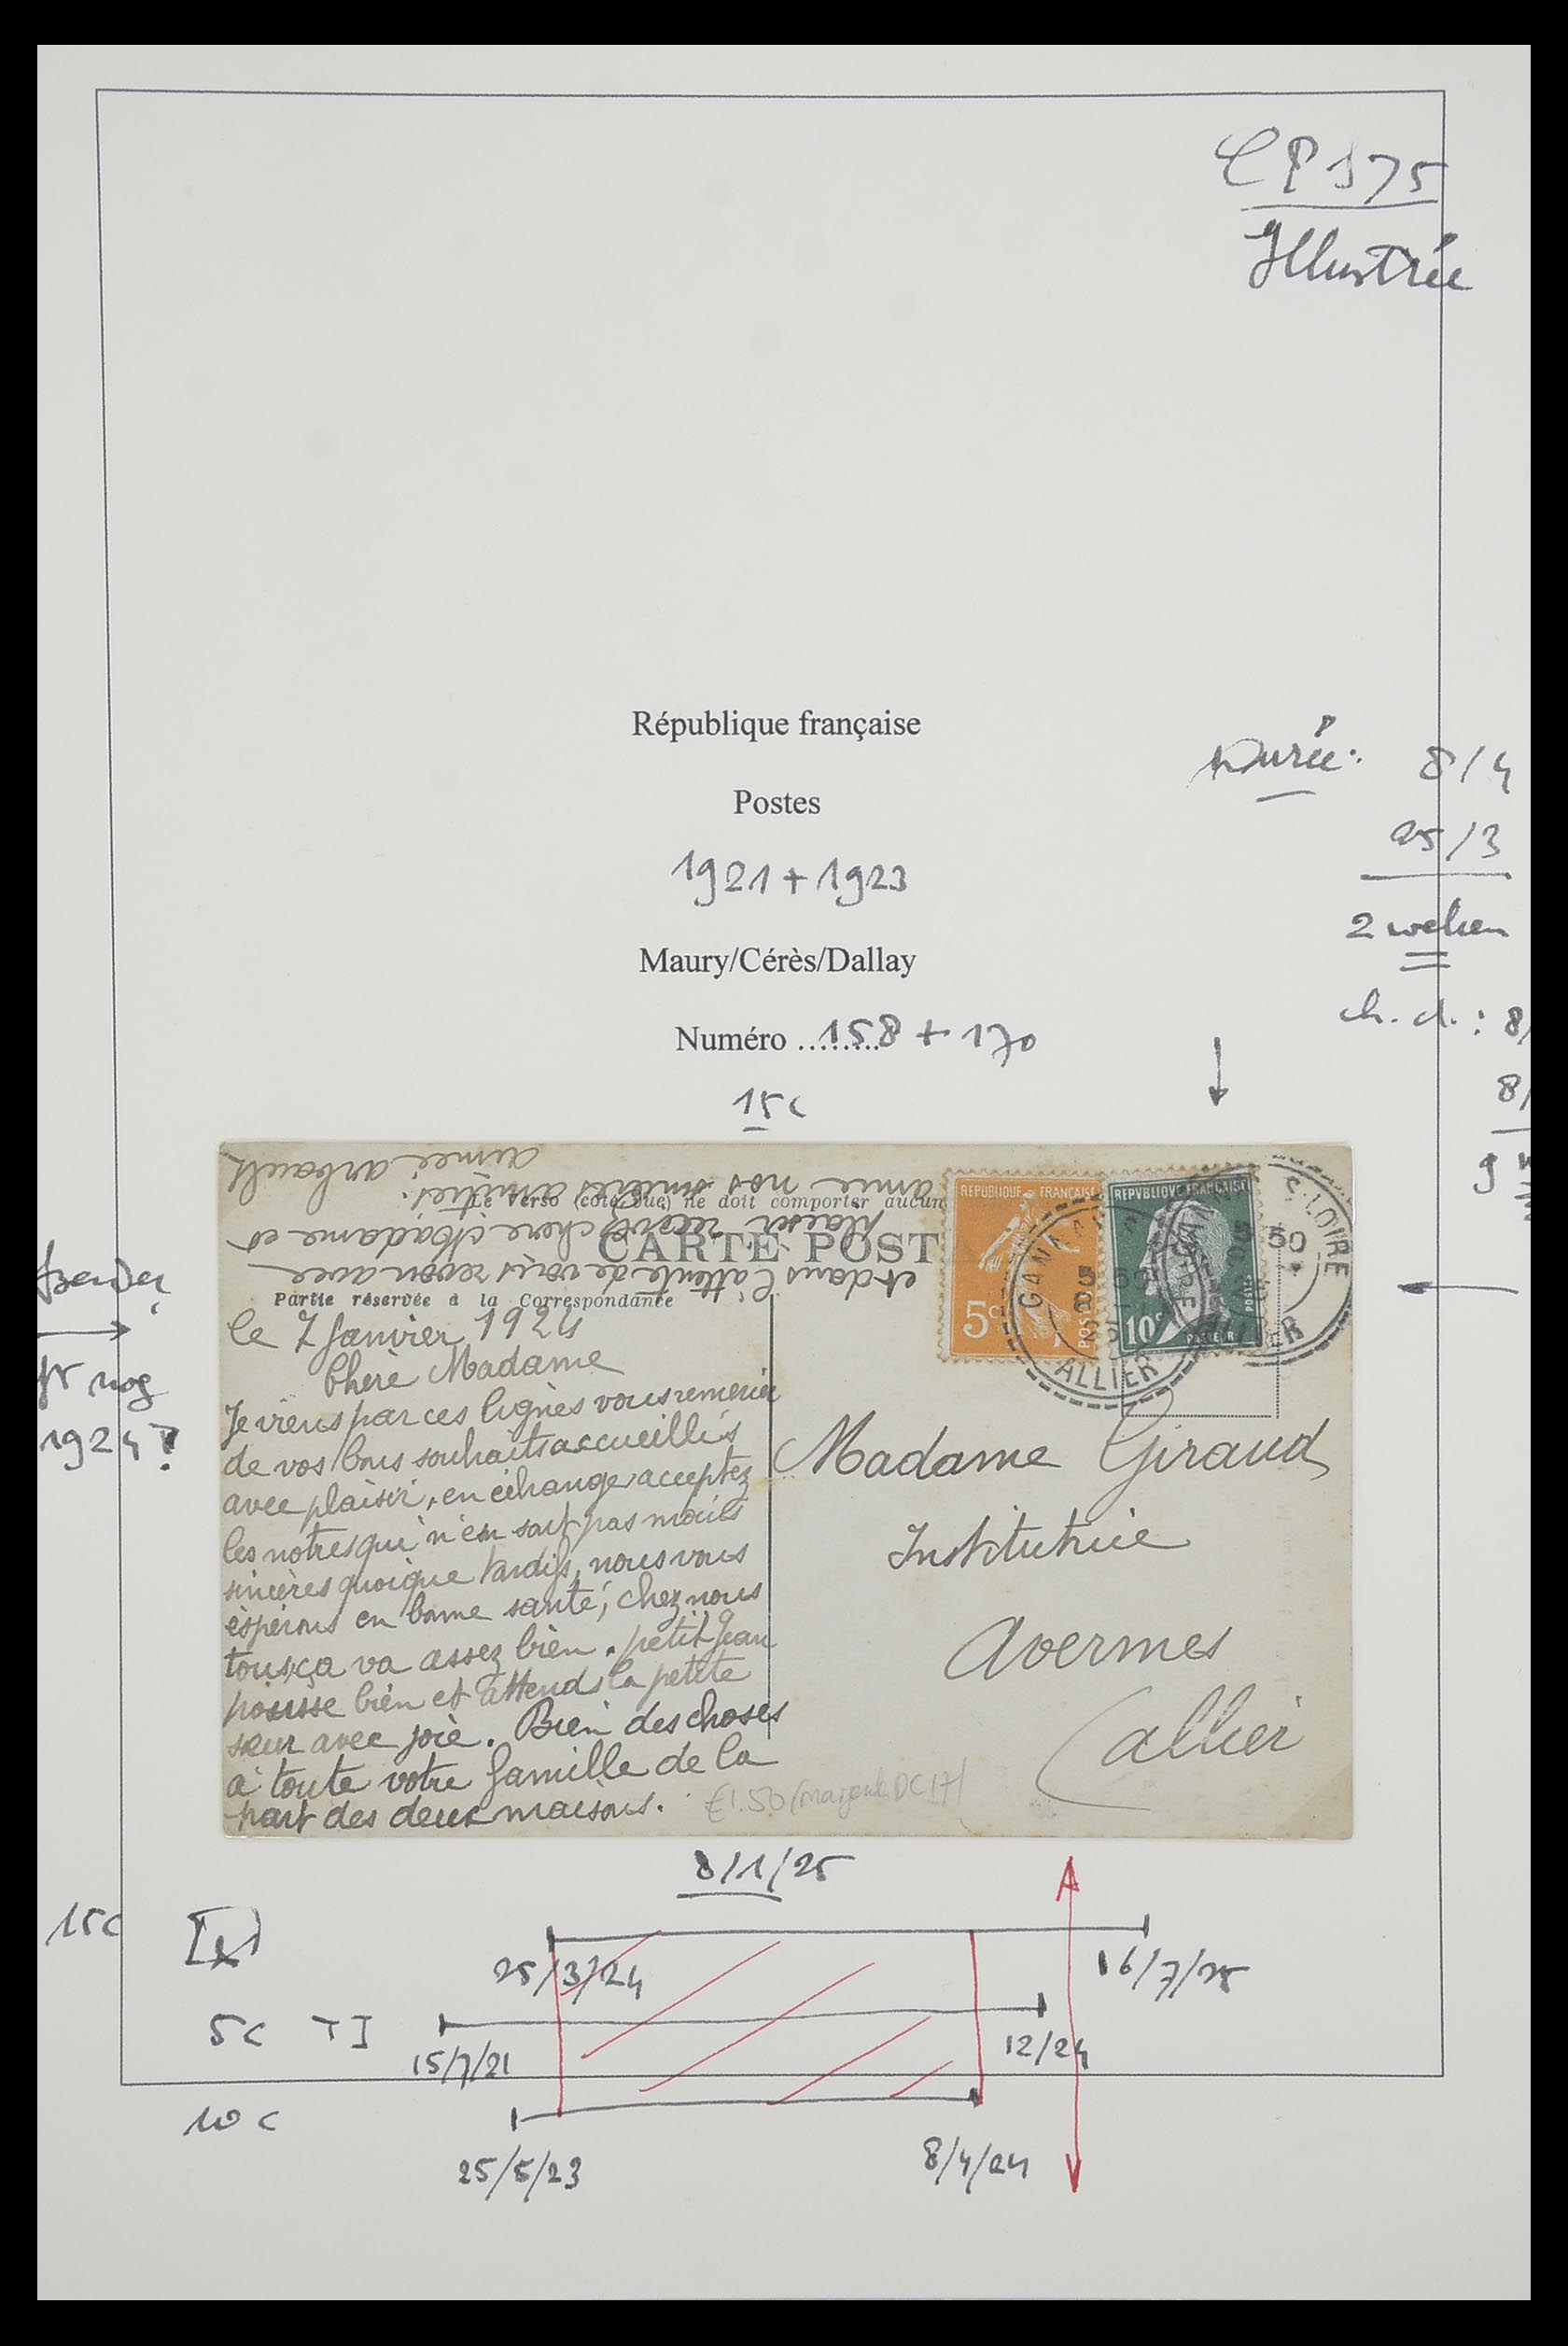 CP 175
Illustrée
République française
Postes
1921 + 1923
Maury/Cérès/Dallay
Numéro ........ 158 + 170
15c
Durée: 8/4
25/3
2 weken
ch. d.: 8/
8/
9 w
fr nog
1924?
Le Verso (côté vue) ne doit comporter aucun
CARTE POST
Partie réservée à la Correspondance
REPUBLIQUE FRANÇAISE
5c
POSTES
REPVBLIQVE FRANÇAISE
10c
PASTEUR
POSTE
GANNA
ALLIER
5 50
S-LOIRE
le 7 Janvier 1924
Chère Madame
Je viens par ces lignes vous remercier
de vos bons souhaits accueillis
avec plaisir, en échange acceptez
les notres qui n'en sont pas moins
sincères quoique tardifs, nous vous
espérons en bonne santé, chez nous
tous, ça va assez bien. petit Jean
pousse bien et attends la petite
sœur avec joie. Bien des choses
à toute votre famille de la
part des deux maisons.
et dans l'attente de vous revoir avec
plaisir recevez chère Madame et
amie nos sincères amitiés.
aimée arbault
Madame Giraud
Institutrice
Avermes
Allier
€1.50 (
8/1/25
15c
25/3/24
16/7/25
5c TI
15/7/21
12/24
10c
25/5/23
8/4/24